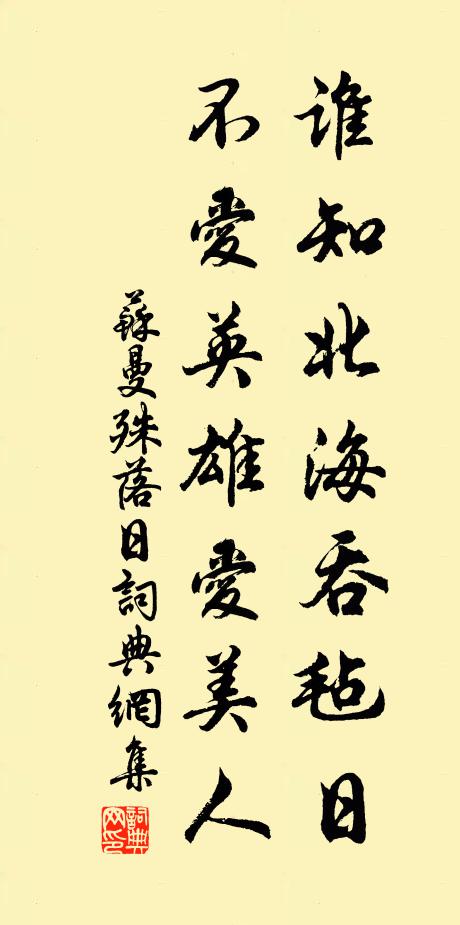 誰知北海吞毡日
不愛英雄愛美人
蘇曼殊落日詞典網集
詞典網印